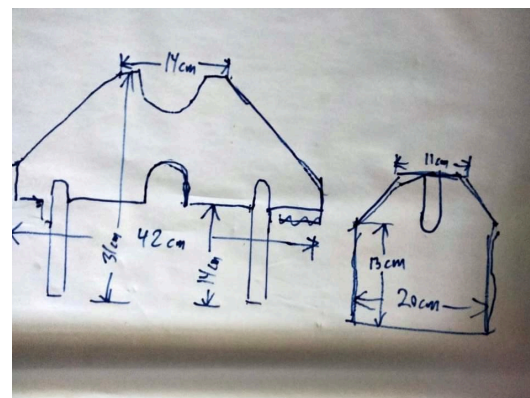 14cm
11cm
31cm
42cm
14cm
13cm
20cm